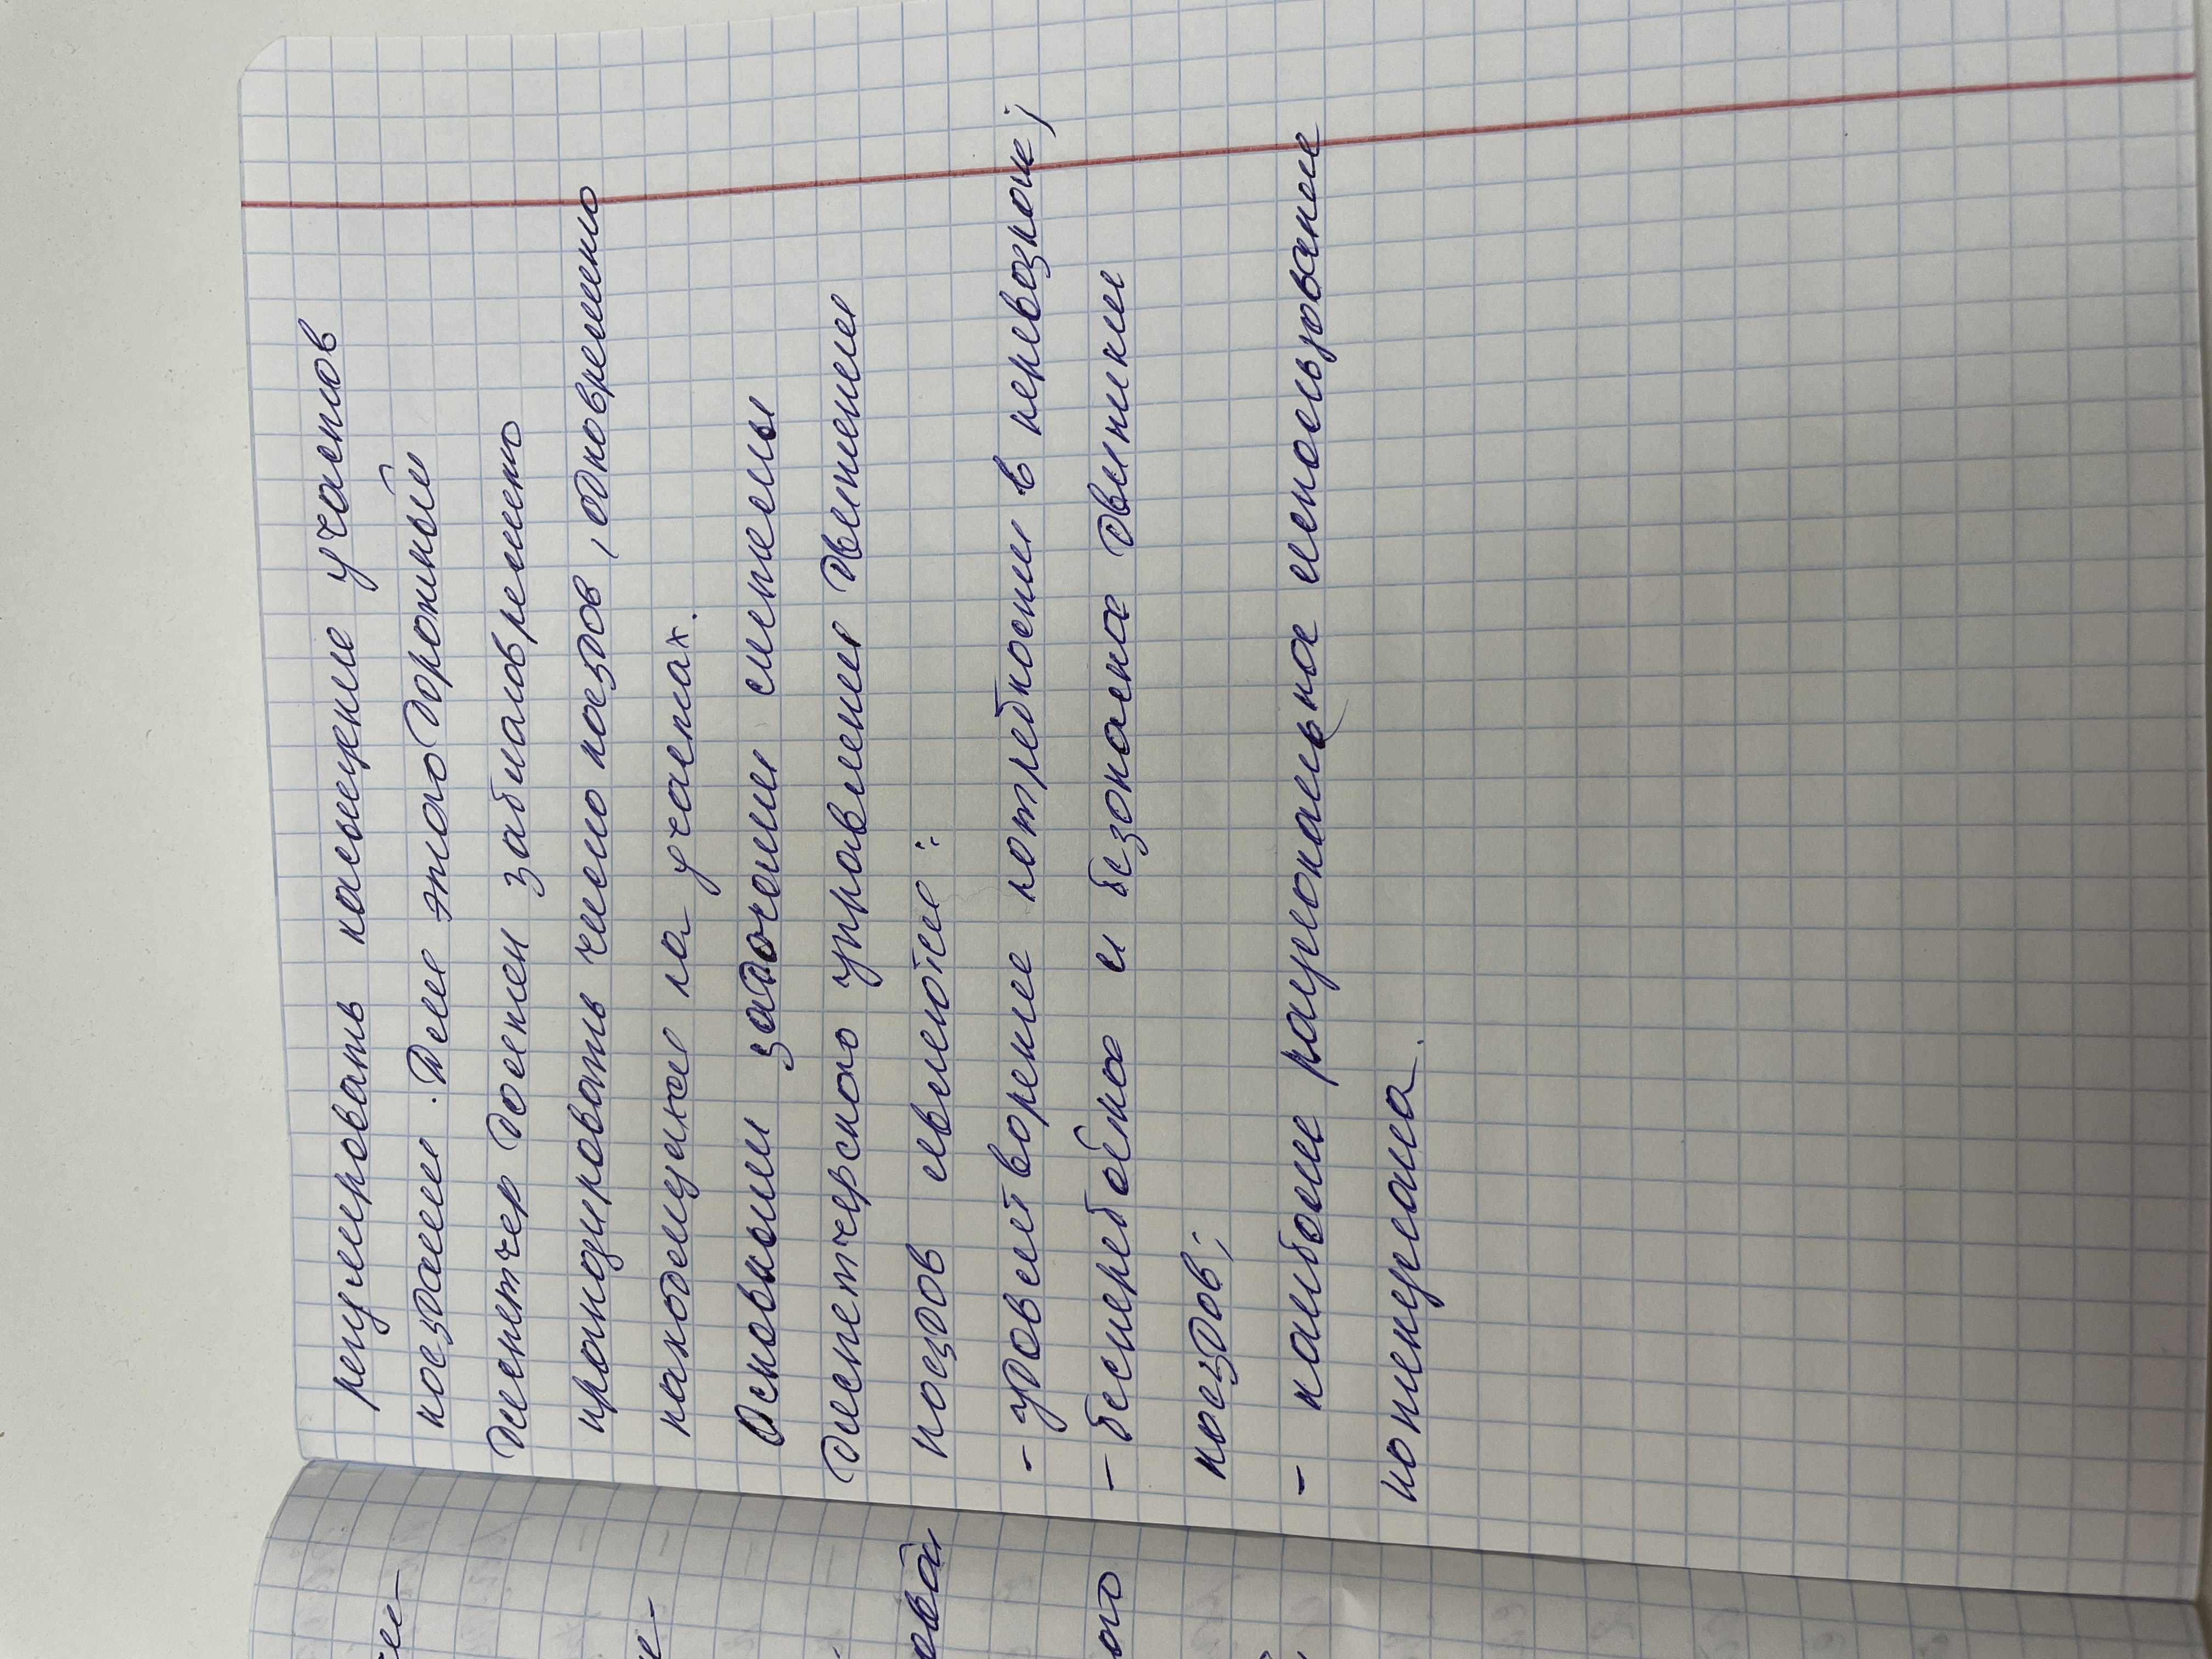 регулировать насыщение участков
поездами. Для этого Дорожный
диспетчер Должен заблаговременно
прогнозировать число поездов, одновременно
находящихся на участках.
Основными задачами системы
диспетчерского управления Движением
поездов являются:
- удовлетворение потребности в перевозкои;
- бесперебойна и безопасна движики
поездов;
- наиболие рациональна использование
потенциала.
овой
ого